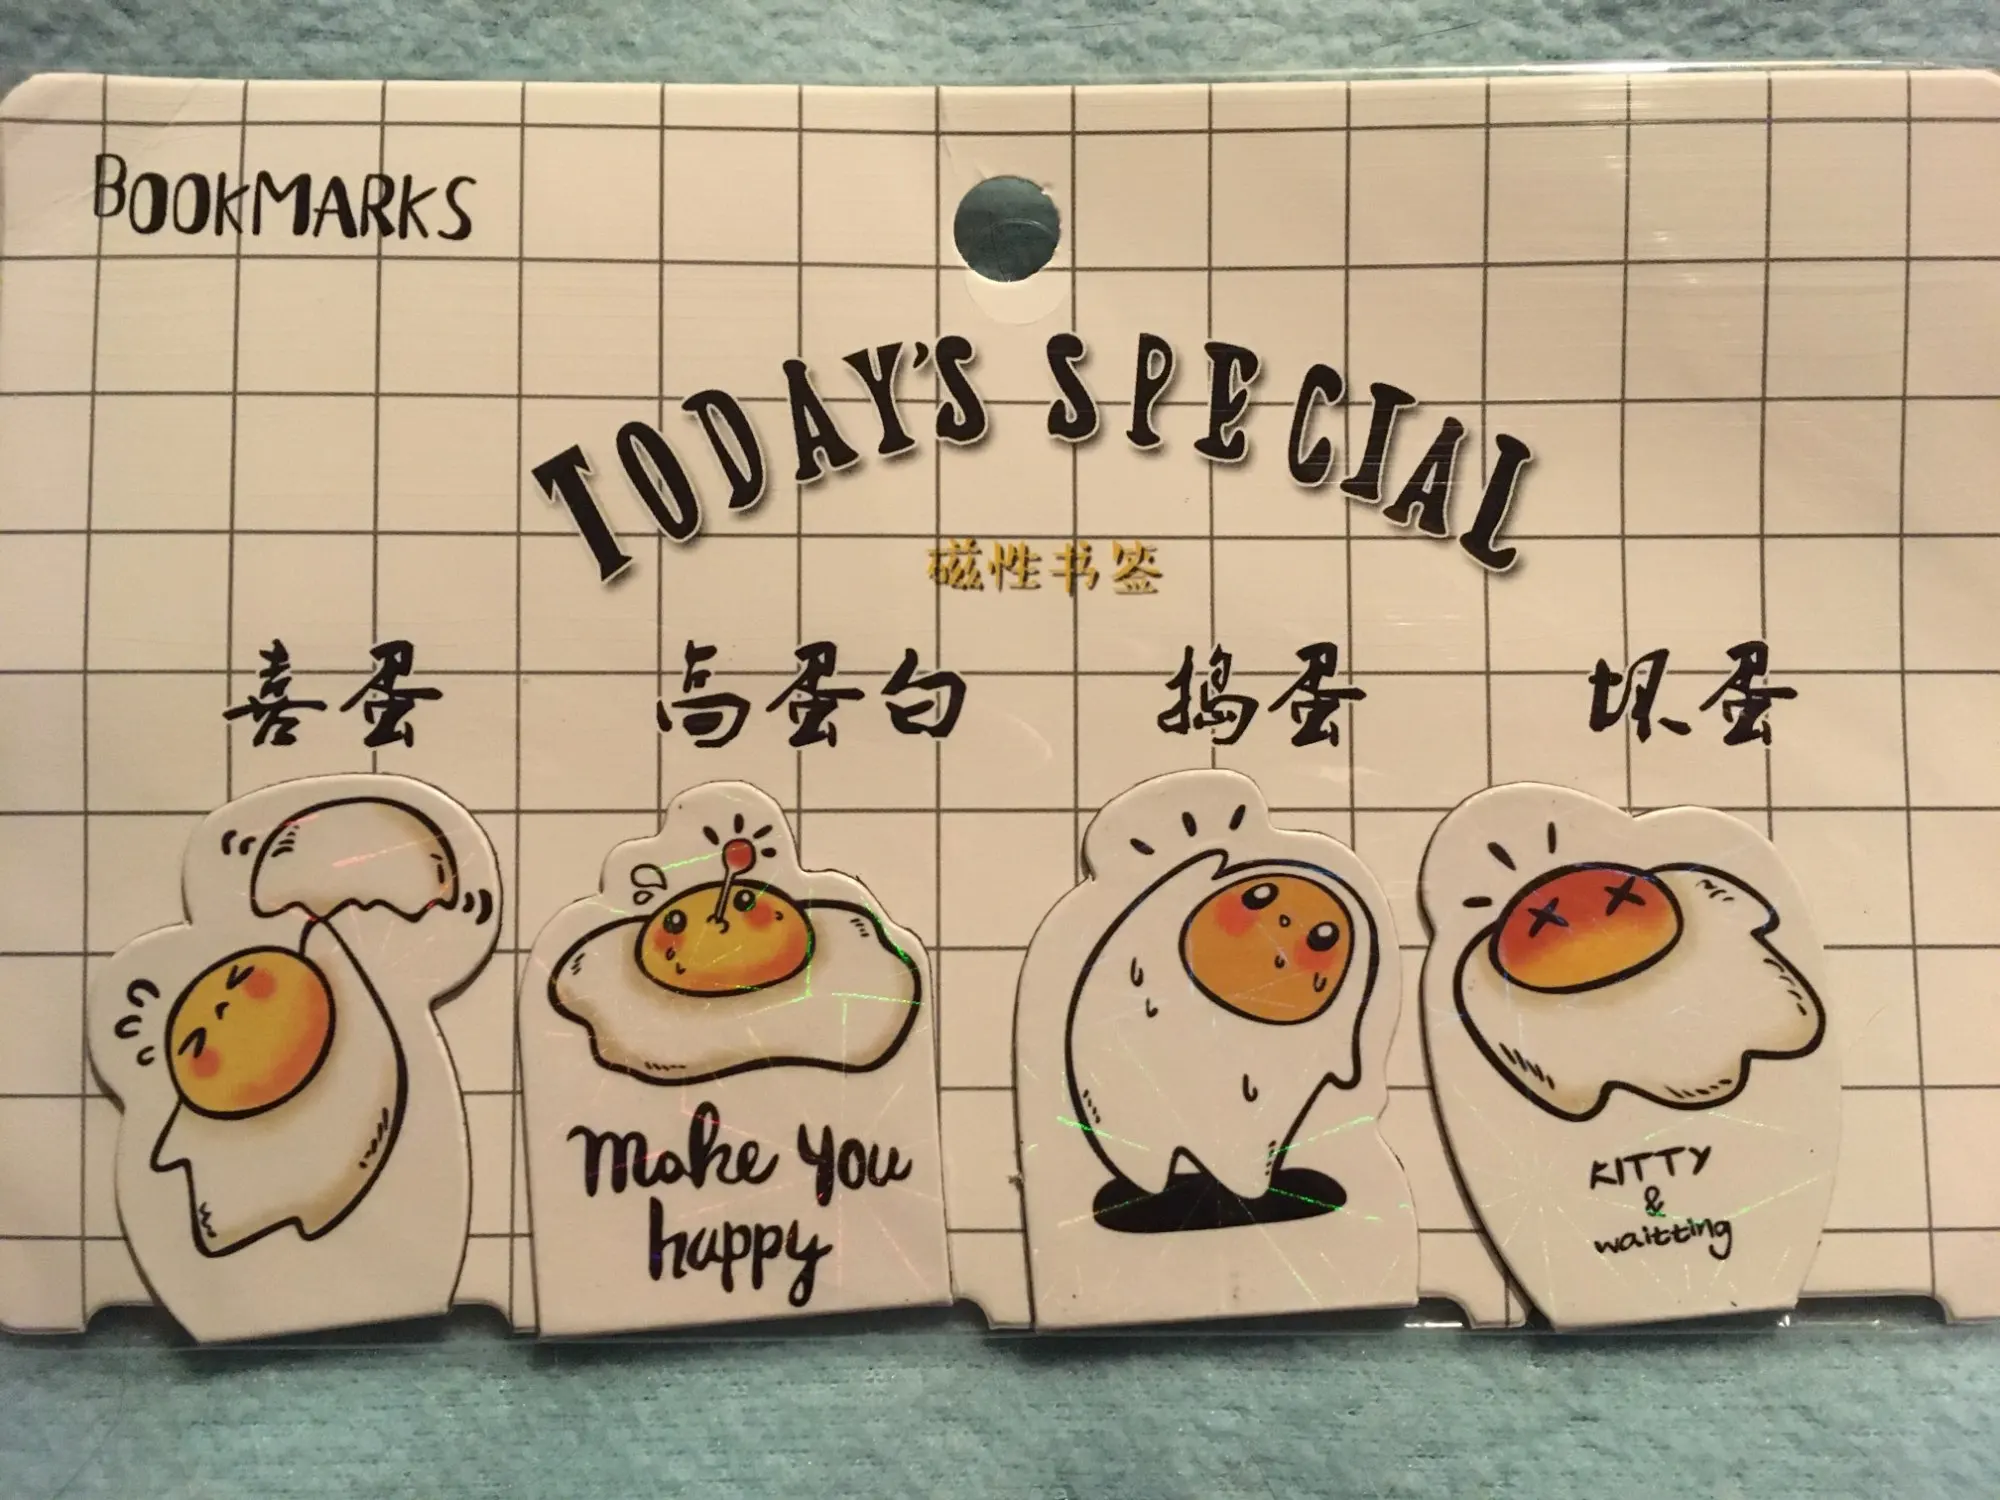 BOOKMARKS
TODAY'S SPECIAL
磁性书签
喜蛋 高蛋白 捣蛋 坏蛋
make you
happy
KITTY
&
waitting